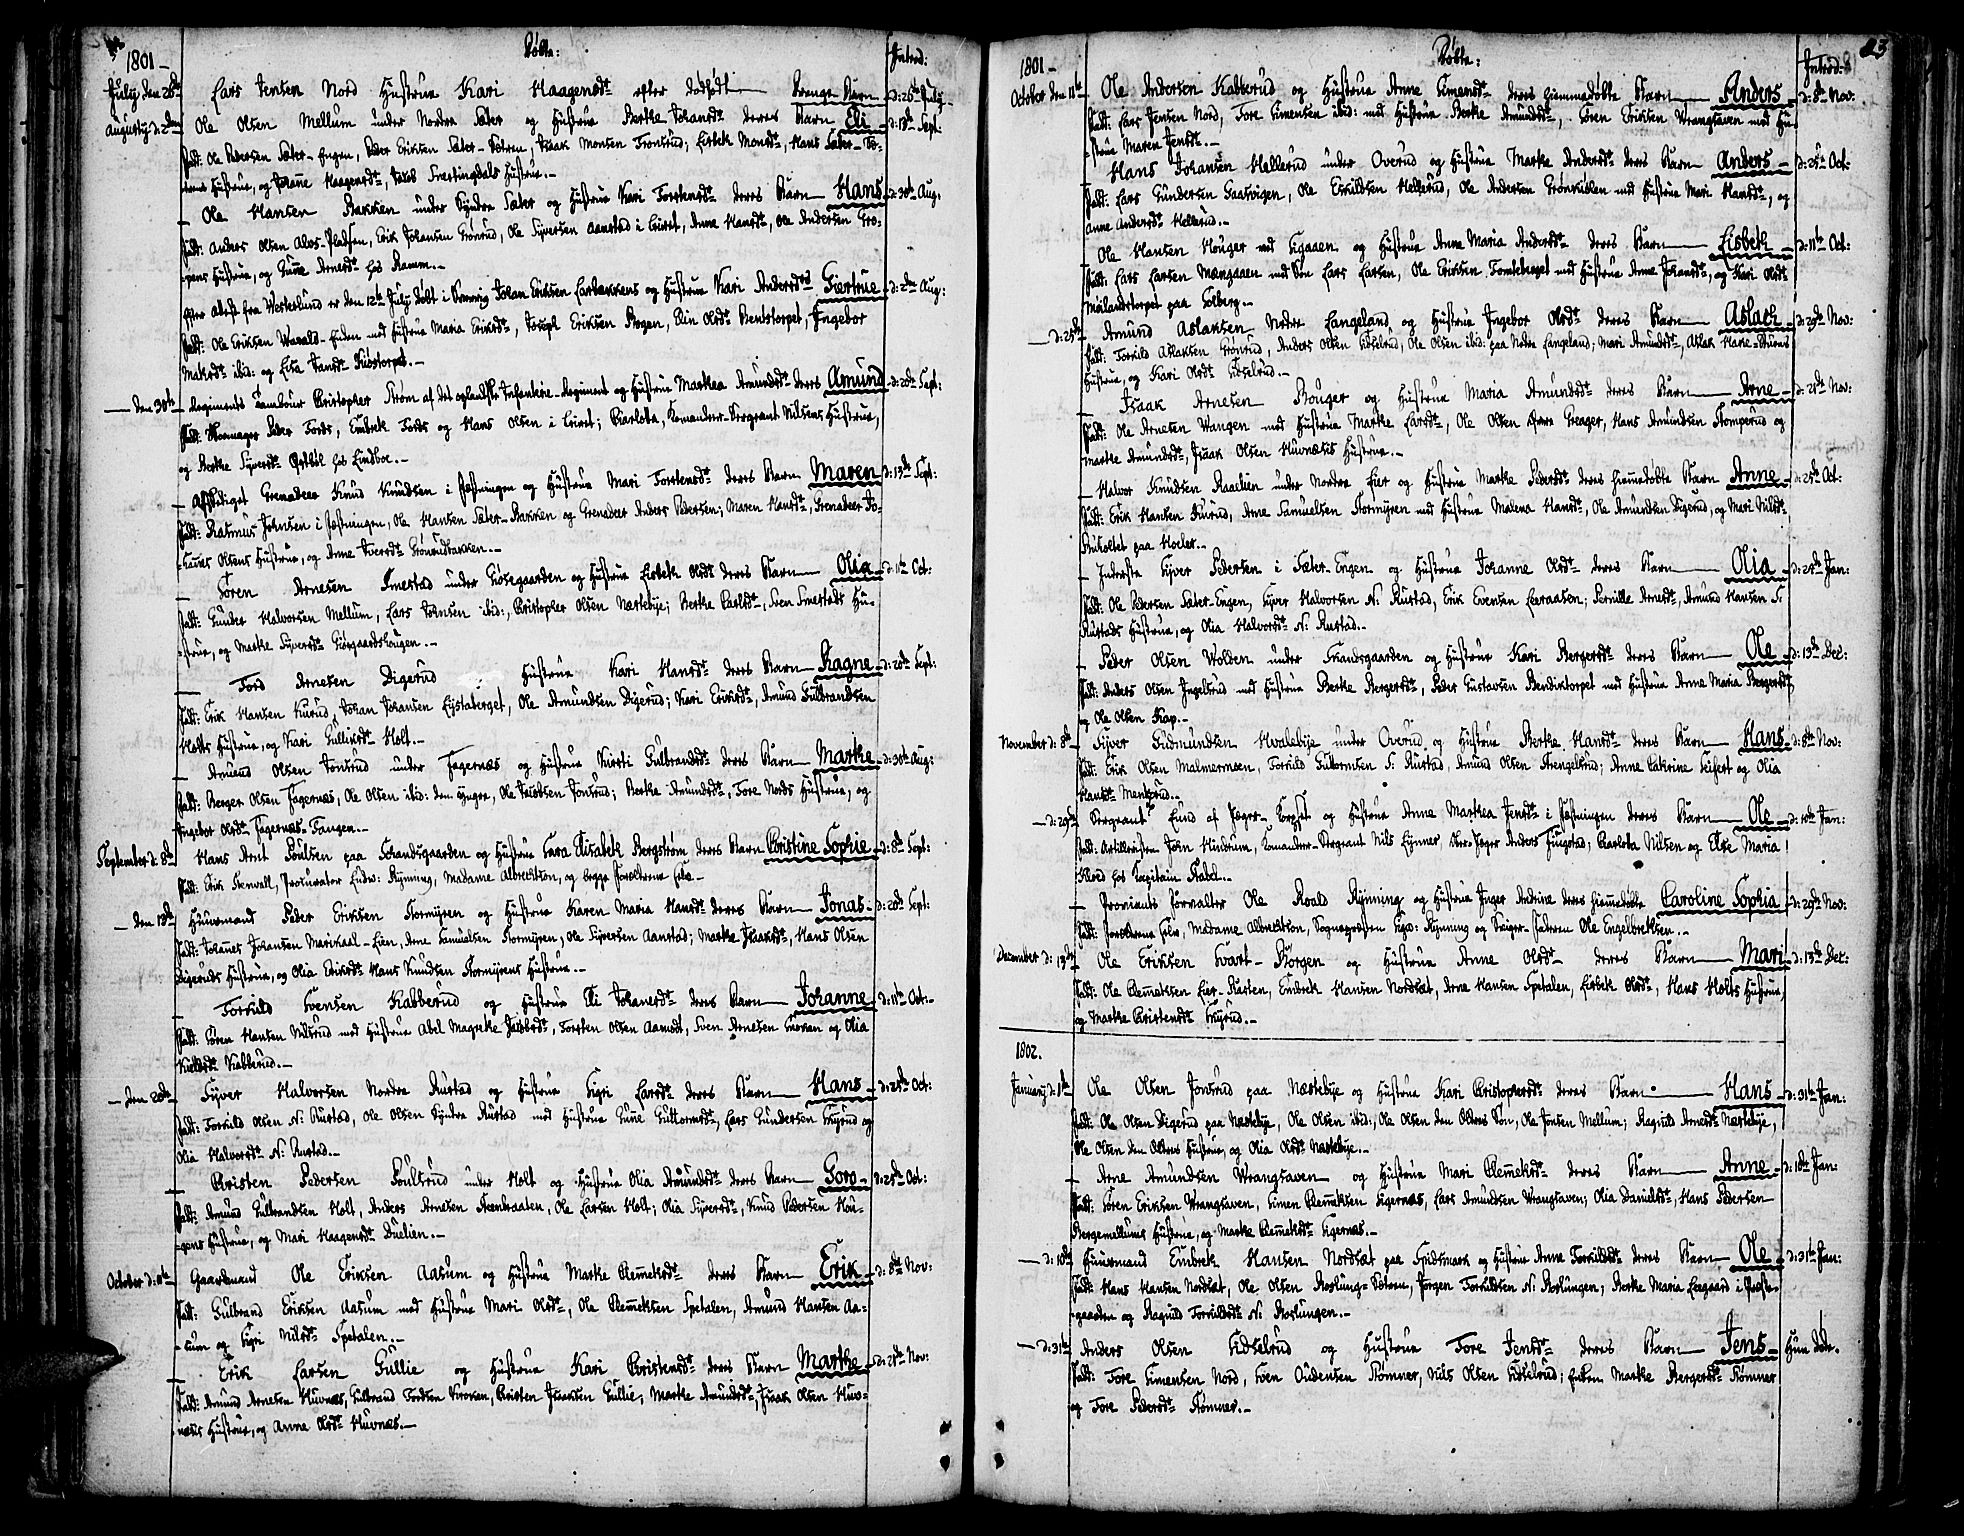 1801 –
Døbte:
Introd:
July den 26de Lars Jensen Nord Hustrue Kari Haagensdr efter dødfødt Drenge Barn d: 26de July
Augusty d: 2den Ole Olsen Mellum under Nordre Sæter og Hustrue Berthe Johansdr deres Barn Eli d: 13de Sept:
Fadd: Ole Pedersen Sæter-Engen, Peder Eriksen Sæter-, Isaak Monsen Tronsrud, Lisbeth Monsdr, Hans Sæter-
Hustrue, og Johanne Haagensdr, Hustrue.–
– Ole Hansen Bakken under Syndre Sæter og Hustrue Kari Torstensdr deres Barn Hans d: 30te Aug:
Fadd: Anders Olsen Pladsen, Erik Johansen Grønrud, Ole Syversen Aanstad i Leiret, Anne Hansdr, Ole Andersen
Hustrue, og Anne Arnesdr hos Ramm.–
Efter Attest fra Westerlund er den 12te July døbt i Johan Eriksen og Hustrue Kari Andersdrs Giertrue d: 2den Aug:
Fadd: Ole Eriksen med Hustrue Maria Eriksdr, Joseph Eriksen Bogen, Elin Olsdr Bentstorpet, Ingebor
ibid: og Elsa Jansdr
– den 30te – Regiments Tambour Christopher Strøm af det oplandske Infanterie-Regiment og Hustrue Marthea Amundsdr deres Amund d: 20de Sept:
Fadd: Peder Fords, Embret Fords og Hans Olsen i Leiret; Charlotta, Komandeer-Sergeant Nilsens Hustrue,
og Berthe Syversdr hos Lindboe.–
– Afskediget Grenadeer Knud Knudsen i Fæstningen og Hustrue Mari Torstensdr deres Barn Maren d: 13de Sept:
Fadd: Rasmus Johnsen i Fæstningen, Ole Hansen Sæter-Bakken og Grenadeer Anders Pedersen; Maren Hansdr, Grenadeer Jo-
-hannes Olsens Hustrue, og Anne Grønrudbakken.–
– Søren Arnesen Smestad under Giøsegaarden og Hustrue Lisbeth Olsdr deres Barn Olia d: 11te Oct:
Fadd: Gunder Halvorsen Mellum, Lars Johnsen ibid:, Christopher Olsen Næstebye; Berthe Carlsdr, Sven Smestads Hu-
-strue, og Marthe Syversdr
– Tord Arnesen Digerud Hustrue Kari Hansdr deres Barn Ragne d: 20de Sept:
Fadd: Erik Hansen Kurud, Johan Johansen, Ole Amundsen Digerud; Kari Eriksdr, Amund Gulbrandsen
Holts Hustrue, og Kari Gulliksdr Holt.–
– Amund Olsen Jonsrud under Fagernæs og Hustrue Kirsti Gulbrandsdr deres Barn Marthe d: 30te Aug:
Fadd: Berger Olsen Fagernæs, Ole Olsen ibid: den yngre, Ole Jacobsen Jonsrud; Berthe Amundsdr, Tore Nords Hustrue, og
Ingebor Olsdr Fagernæs-Tangen.–
September d: 8de Hans Arnt Poulsen paa Schandsgaarden og Hustrue Sara Elisabeth Bergstrøm deres Barn Christine Sophie d: 8de Sept:
Fadd: Erik Stenvall, Procurator Ludw: Rynning, Madame Albrechtson, og begge Forældrene selv.–
– den 13de Huusmand Peder Eriksen Stormyren og Hustrue Karen Maria Hansdr deres Barn Jonas d: 20de Sept:
Fadd: Johannes Johansen, Arne Samuelsen Stormyren, Ole Syversen Aanstad; Marthe Isaksdr, Hans Olsen
Digeruds Hustrue, og Olia Eriksdr Hans Knudsen Stormyrens Hustrue.–
– Torkild Svensen Kabberud og Hustrue Eli Johansdr deres Barn Johanne d: 11te Oct:
Fadd: Søren Hansen Nilsrud med Hustrue Abel Magrethe Jacobsdr, Torsten Olsen Aamodt, Sven Arnesen og Olia
Kabberud.–
– den 20de Syver Halvorsen Nordre Rustad og Hustrue Sigri Larsdr deres Barn Hans d: 25de Oct:
Fadd: Torkild Olsen N: Rustad, Ole Olsen Syndre Rustad med Hustrue Gune Guttormsdr, Lars Gundersen Skyrud og
Olia Halvorsdr N: Rustad.–
– Christen Pedersen Poulsrud under Holt og Hustrue Olia Amundsdr deres Barn Goro d: 25de Oct:
Fadd: Amund Gulbrandsen Holt, Anders Arnesen Steenbraaten, Ole Larsen Holt; Olia Syversdr, Knud Pedersen Hou-
-gens Hustrue, og Mari Haagensdr
October d: 4de Gaardmand Ole Eriksen Aasum og Hustrue Marthe Clemetsdr deres Barn Erik d: 8de Nov:
Fadd: Gulbrand Eriksen Aasum med Hustrue Mari Olsdr, Ole Clemetsen Spetalen, Amund Hansen Aa-
-sum og Sigri Nilsdr Spetalen.–
– Erik Larsen Gullie og Hustrue Kari Christensdr deres Barn Marthe d: 21de Nov:
Fadd: Amund Arnesen Huvnæs, Gulbrand Tordsen Kroken, Christen Isaaksen Gullie, Marthe Amundsdr, Isaak Olsen Huv-
næses Hustrue, og Anna Olsdr Huvnæs.–
1801 –
Døbte:
Introd:
23
October den 11te Ole Andersen Kabberud og Hustrue Anne Simensdr deres hiemmedøbte Barn Anders d: 8de Nov:
Fadd: Lars Jensen Nord, Tore Simensen ibid: med Hustrue Berthe Amundsdr, Søren Eriksen Wrangsaven med Hu-
-strue Maren Jensdr.–
– Hans Johansen Hellerud under Overud og Hustrue Marthe Andersdr deres Barn Anders d: 25de Oct:
Fadd: Lars Gundersen Gaasvigen, Ole Eskildsen Hellerud, Ole Andersen med Hustrue Mari Hansdr, og
Anne Andersdr Hellerud.–
– Ole Hansen Houger ved Skaaen og Hustrue Anne Maria Andersdr deres Barn Lisbeth d: 11te Oct:
Fadd: Lars Larsen med Søn Lars Larsen, Ole Eriksen Tomteberget med Hustrue Anne Johansdr, og Kari Olsdr
Moilandstorpet paa Solberg.–
– d: 25de Amund Aslaksen Nedre Langeland og Hustrue Ingebor Olsdr deres Barn Aslach d: 29de Nov:
Fadd: Torkild Aslaksen Grønrud, Anders Olsen Sidselrud, Ole Olsen ibid: paa Nedre Langeland; Mari Amundsdr, Aslak
Hustrue, og Kari Olsdr Sidselrud.–
– Isaak Arnesen Houger og Hustrue Maria Amundsdr deres Barn Arne d: 21de Nov:
Fadd: Ole Arnesen Wangen med Hustrue Marthe Larsdr, Ole Olsen Greager, Hans Amundsen Stomperud og
Marthe Amundsdr, Isaak Olsen Huvnæses Hustrue.–
– Halvor Knudsen Raaelien under Nordre Eier og Hustrue Marthe Pedersdr deres hiemmedøbte Barn Anne d: 25de Oct:
Fadd: Erik Hansen Kurud, Arne Samuelsen Stormyren med Hustrue Malena Hansdr, Ole Amundsen Digerud, og Mari Nilsdr
paa Hoelse.–
– Inderste Syver Pedersen i Sæter-Engen og Hustrue Johanne Olsdr deres Barn Olia d: 24de Jan:
Fadd: Ole Pedersen Sæter-Engen, Syver Halvorsen N: Rustad, Erik Evensen Leeraasen; Pernille Arnesdr, Amund Hansen S:
Rustads Hustrue, og Olia Halvorsdr N: Rustad.–
– Peder Olsen Wolden under Skandsgaarden og Hustrue Kari Bergersdr deres Barn Ole d: 13de Dec:
Fadd: Anders Olsen Ingelsrud med Hustrue Berthe Bergersdr, Peder Gustavsen Bendiktorpet med Hustrue Anne Maria Bergersdr,
og Ole Olsen Kap.–
November d: 8de Syver Gudmundsen Hvalebye under Overud og Hustrue Berthe Hansdr deres Barn Hans d: 8de Nov:
Fadd: Erik Olsen Malmermoen, Torkild Guttormsen S: Rustad, Amund Olsen Strengelsrud; Anne Cathrine Seifert og Olia
Hansdr Menkerud.–
– d: 29de Sergeant Lund af Jæger-Corpset og Hustrue Anne Marthea Jensdr i Fæstningen deres Barn Ole d: 10de Jan:
Fadd: Artilleristen John Hindrum, Komandeer-Sergeant Nils Lynner, Jæger Anders Fingstad, Charlotta Nilsen og Else Maria
hos Capitain Stabel.–
– Proviants Forvalter Ole Roald Rynning og Hustrue Inger Andrine deres hiemmedøbte Caroline Sophia d: 29de Nov:
Fadd: Forældrene selv, Madame Albrechtson, Sogneprosten Rynning og Ole Engelbretsen.–
December d: 13de Ole Eriksen Svart-Borgen og Hustrue Anne Olsdr deres Barn Mari d: 13de Dec:
Fadd: Ole Clemetsen Eier-Kasten, Embret Hansen Nordsæt, Arne Hansen Spetalen, Lisbeth Olsdr, Hans Holts Hustrue,
og Marthe Christensdr Skyrud.–
1802.
January d: 1ste Ole Olsen Jonsrud paa Næstebye og Hustrue Kari Christophersdr deres Barn Hans d: 31te Jan:
Fadd: Ole Olsen Digerud paa Næstebye, Ole Olsen ibid:, Ole Olsen den Ældres Søn, Ole Jonsen Mellum; Ragnild Arnesdr Næstebye,
Ole Olsen den Ældres Hustrue, og Olia Olsdr Næstebye.–
– Arne Amundsen Wrangsaven og Hustrue Mari Clemetsdr deres Barn Anne d: 1ste Jan:
Fadd: Søren Eriksen Wrangsaven, Simen Clemetsen Sigernæs, Lars Amundsen Wrangsaven; Olia Danielsdr, Hans Pedersen
Bergemellums Hustrue, og Marthe Clemetsdr Sigernæs.–
– d: 10de Huusmand Embret Hansen Nordsæt paa Spidsmark og Hustrue Anne Torkildsdr deres Barn Ole d: 31te Jan:
Fadd: Hans Hansen Nordsæt, Ole Olsen, Jørgen Torkildsen N: Roslungen; Berthe Maria Leegaard i Præste-
gaarden og Ragnild Torkildsdr N: Roslungen.–
– d: 31te Anders Olsen Sidselrud og Hustrue Tore Jensdr deres Barn Jens Hun død.
Fadd: Tore Simensen Nord, Sven Audensen Stømner, Nils Olsen Sidselrud; Enken Marthe Bergersdr Stømner
og Tore Pedersdr Stømner.–